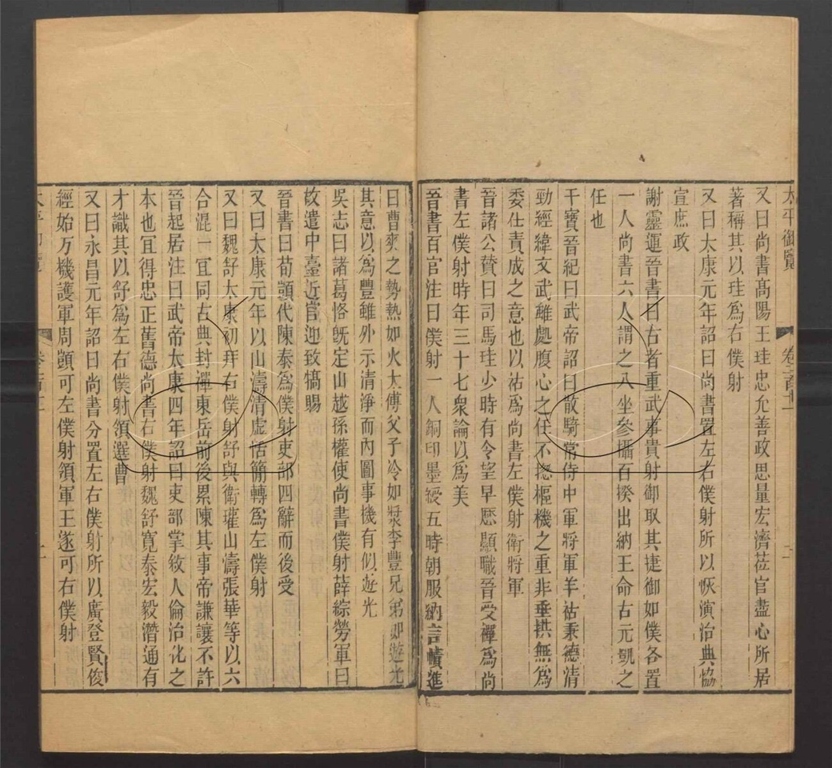 太平御覽 卷二百十一
又曰尚書高陽王珪忠允善政思量宏濟莅官盡心所居
著稱其以珪爲右僕射
又曰太康元年詔曰尚書置左右僕射所以恢演治典協
宣庶政
謝靈運晉書曰古者重武事貴射御取其捷御如僕各置
一人尚書六人謂之八坐參攝百揆出納王命古元凱之
任也
干寶晉紀曰武帝詔曰散騎常侍中軍將軍羊祜秉德清
劭經緯文武雖處腹心之任不摠樞機之重非垂拱無爲
委任責成之意也以祜爲尚書左僕射衛將軍
晉諸公贊曰司馬珪少時有令望早歷顯職晉受禪爲尚
書左僕射時年三十七衆論以爲美
晉書百官注曰僕射一人銅印墨綬五時朝服納言幘進
曰曹爽之勢熱如火太傅父子冷如漿李豐兄弟如遊光
其意以爲豐雖外示清淨而內圖事機有似遊光
吳志曰諸葛恪旣定山越孫權使尚書僕射薛綜勞軍曰
故遣中臺近官迎致犒賜
晉書曰荀顗代陳泰爲僕射吏部四辭而後受
又曰太康元年以山濤清虛恬簡轉爲左僕射
又曰魏舒太康初拜右僕射舒與衛瓘山濤張華等以六
合混一宜同古典封禪東岳前後累陳其事帝謙讓不許
晉起居注曰武帝太康四年詔曰吏部掌敘人倫治化之
本也宜得忠正舊德尚書右僕射魏舒寬泰宏毅潛通有
才識其以舒爲左右僕射領選曹
又曰永昌元年詔曰尚書分置左右僕射所以廣登賢俊
經始万機護軍周顗可左僕射領軍王邃可右僕射